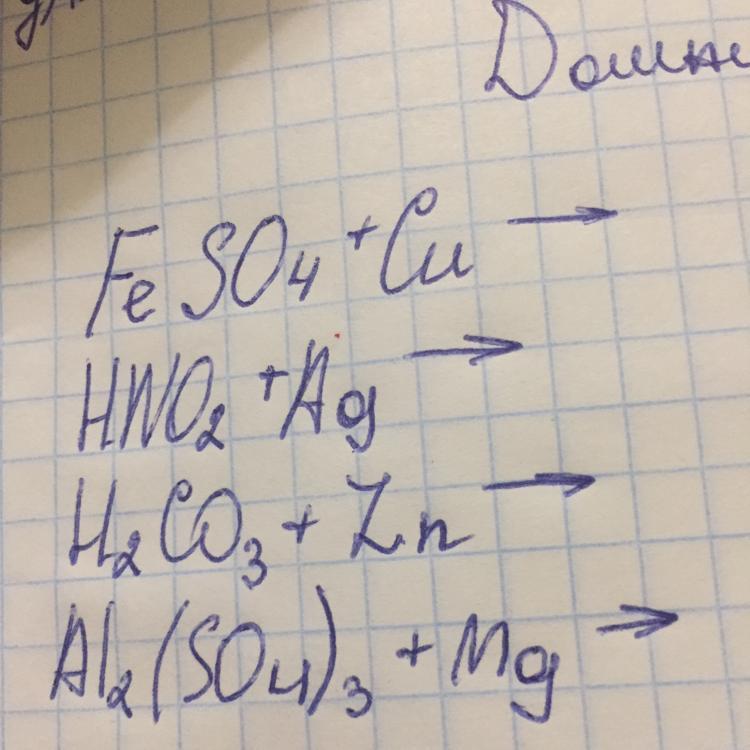 FeSO4 + Cu →
HNO2 + Ag →
H2CO3 + Zn →
Al2(SO4)3 + Mg →